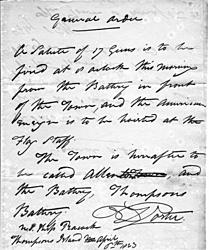 General Order
A Salute of 17 Guns is to be
fired at 8 oclock this morning
from the Battery in front
of the Town, and the American
Ensign is to be hoisted at the
Flag Staff.
The Town is hereafter to
be called Allenton and
the Battery, Thompsons
Battery.
D Porter
Peacock
Thompsons Island April
8th 1823